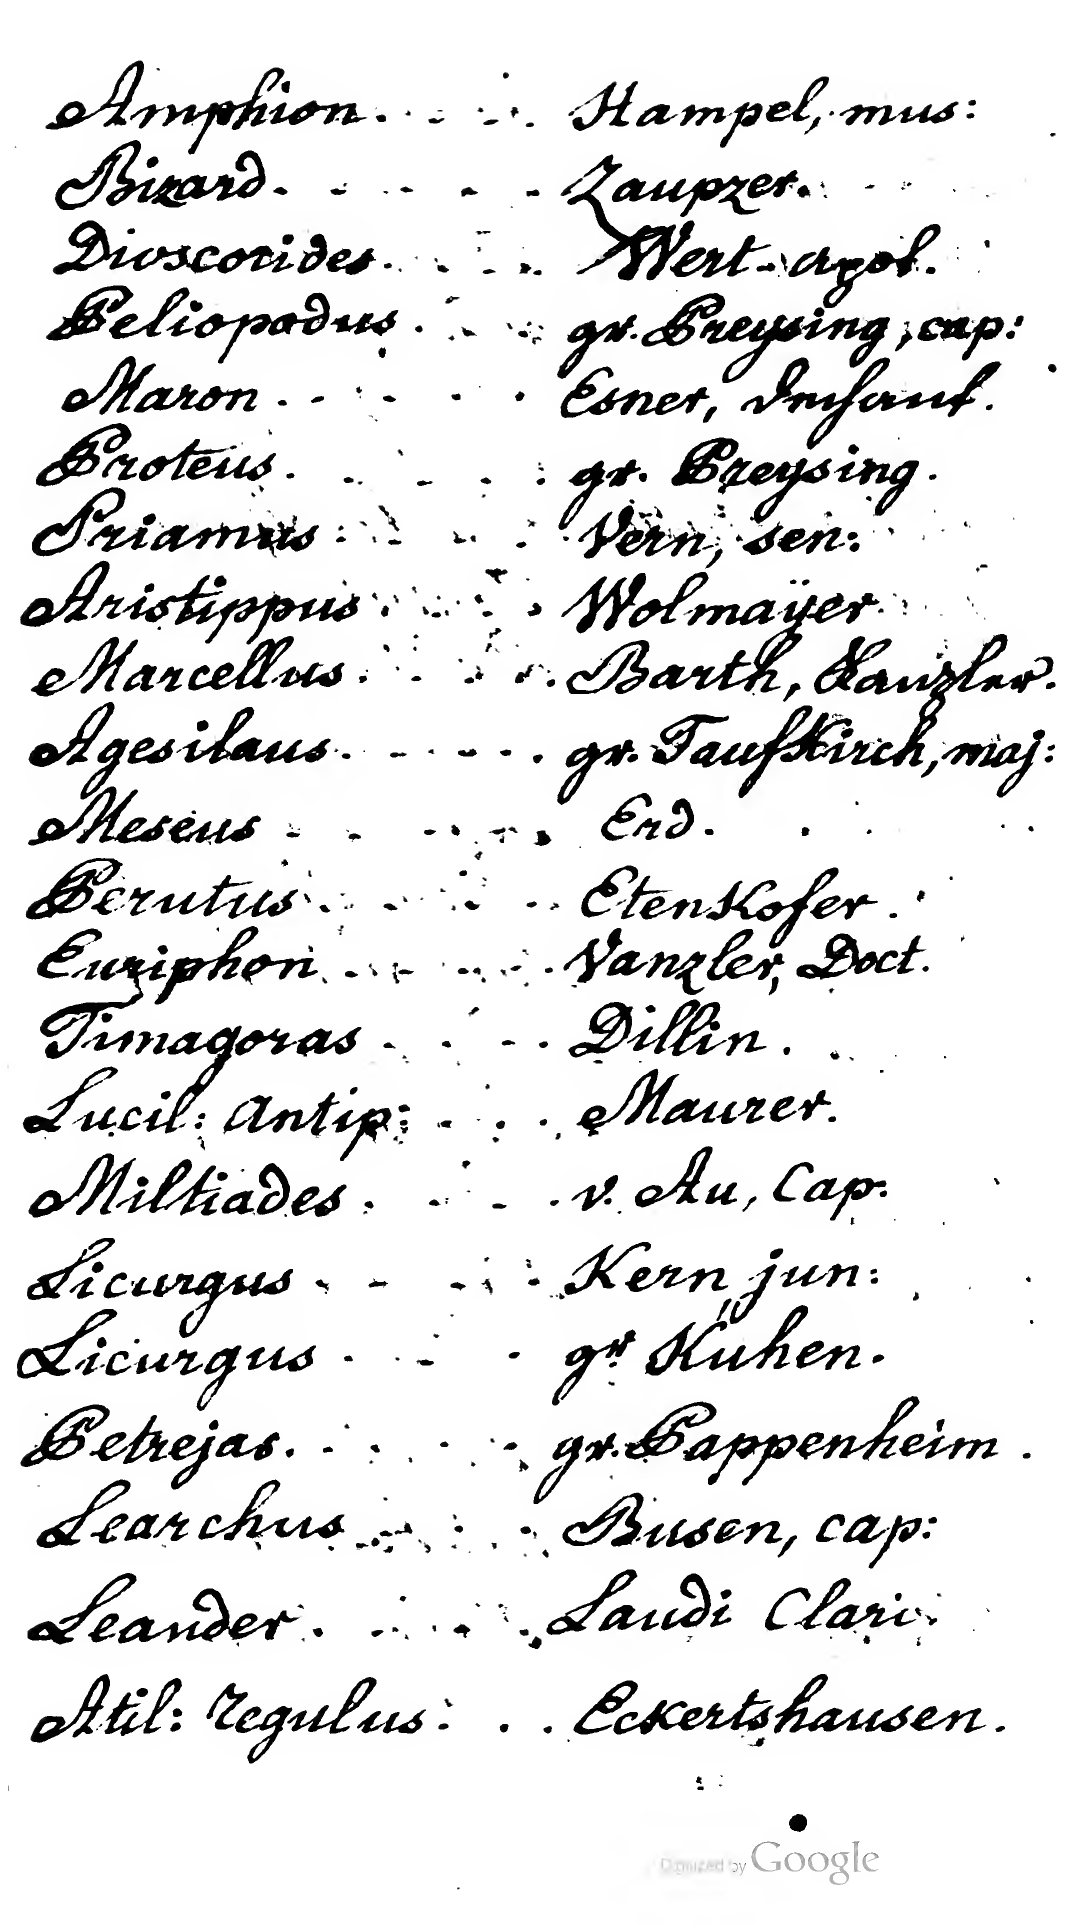 Amphion. Hampel, mus:
Bizard. Zaupzer.
Dioscorides. Wert. apot.
Peliopodus. gr. Preysing, cap:
Maron Esner,
Proteus. gr. Preysing.
Priamus Vern, sen:
Aristippus Wolmaÿer
Marcellus. Barth, Kanzler.
Agesilaus. gr. Taufkirch, maj:
Meseus Erd.
Perutus. Etenkofer.
Euriphon Vanzler, Doct.
Timagoras Dillin.
Lucil: Antip: Maurer.
Miltiades v. Au, Cap:
Licurgus Kern jun:
Licurgus gr Kühen.
Petrejas. gr. Pappenheim.
Learchus Busen, cap:
Leander. Laudi
Atil: regulus: Eckertshausen.
Digitized by Google